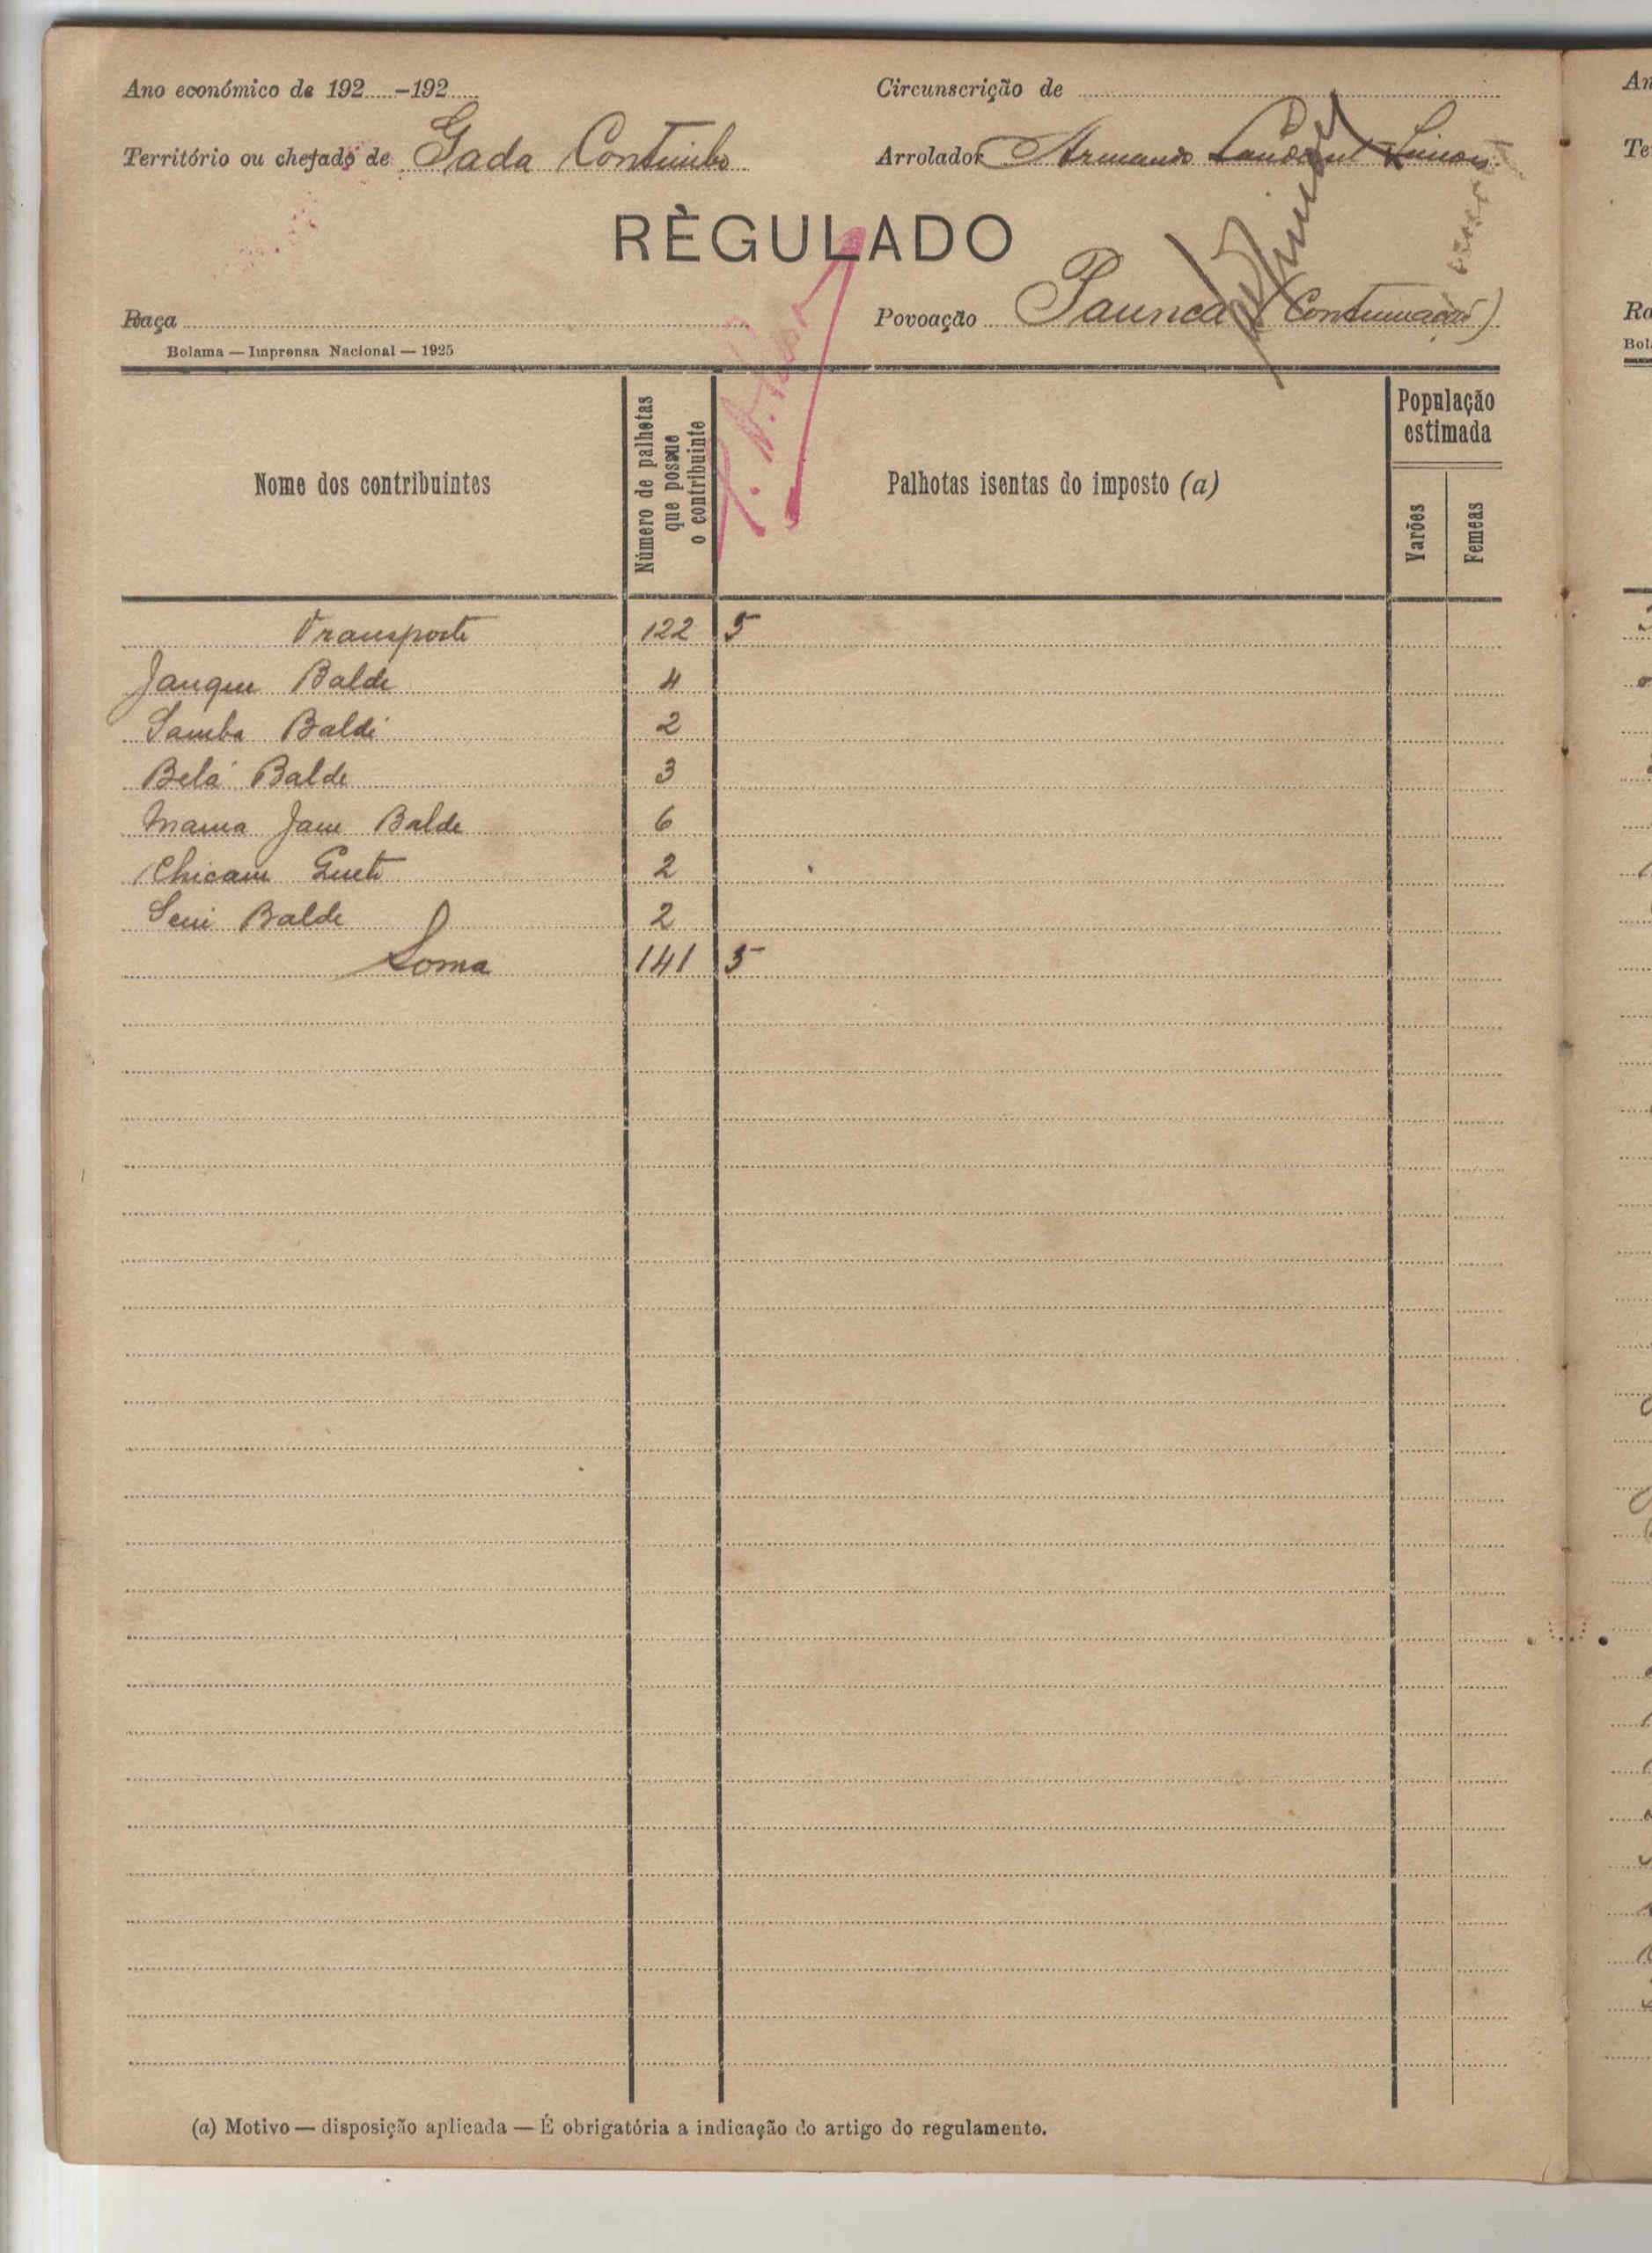 Ano económico de 192.....–192.....
Circunscrição de
Território ou chefado de Gada Contuimbo
Arrolador Armando
RÈGULADO
Raça
Povoação Paunca (Continuação)
Bolama — Imprensa Nacional — 1925
Nome dos contribuintes
Número de palhotas que possue o contribuinte
Palhotas isentas do imposto (a)
População estimada
Varões
Femeas
Transporte 122 5
Jangue Balde 4
Samba Baldé 2
Belá Balde 3
Mama Jam Balde 6
Chicam 2
Seni Balde 2
Soma 141 5
(a) Motivo — disposição aplicada — É obrigatória a indicação do artigo do regulamento.